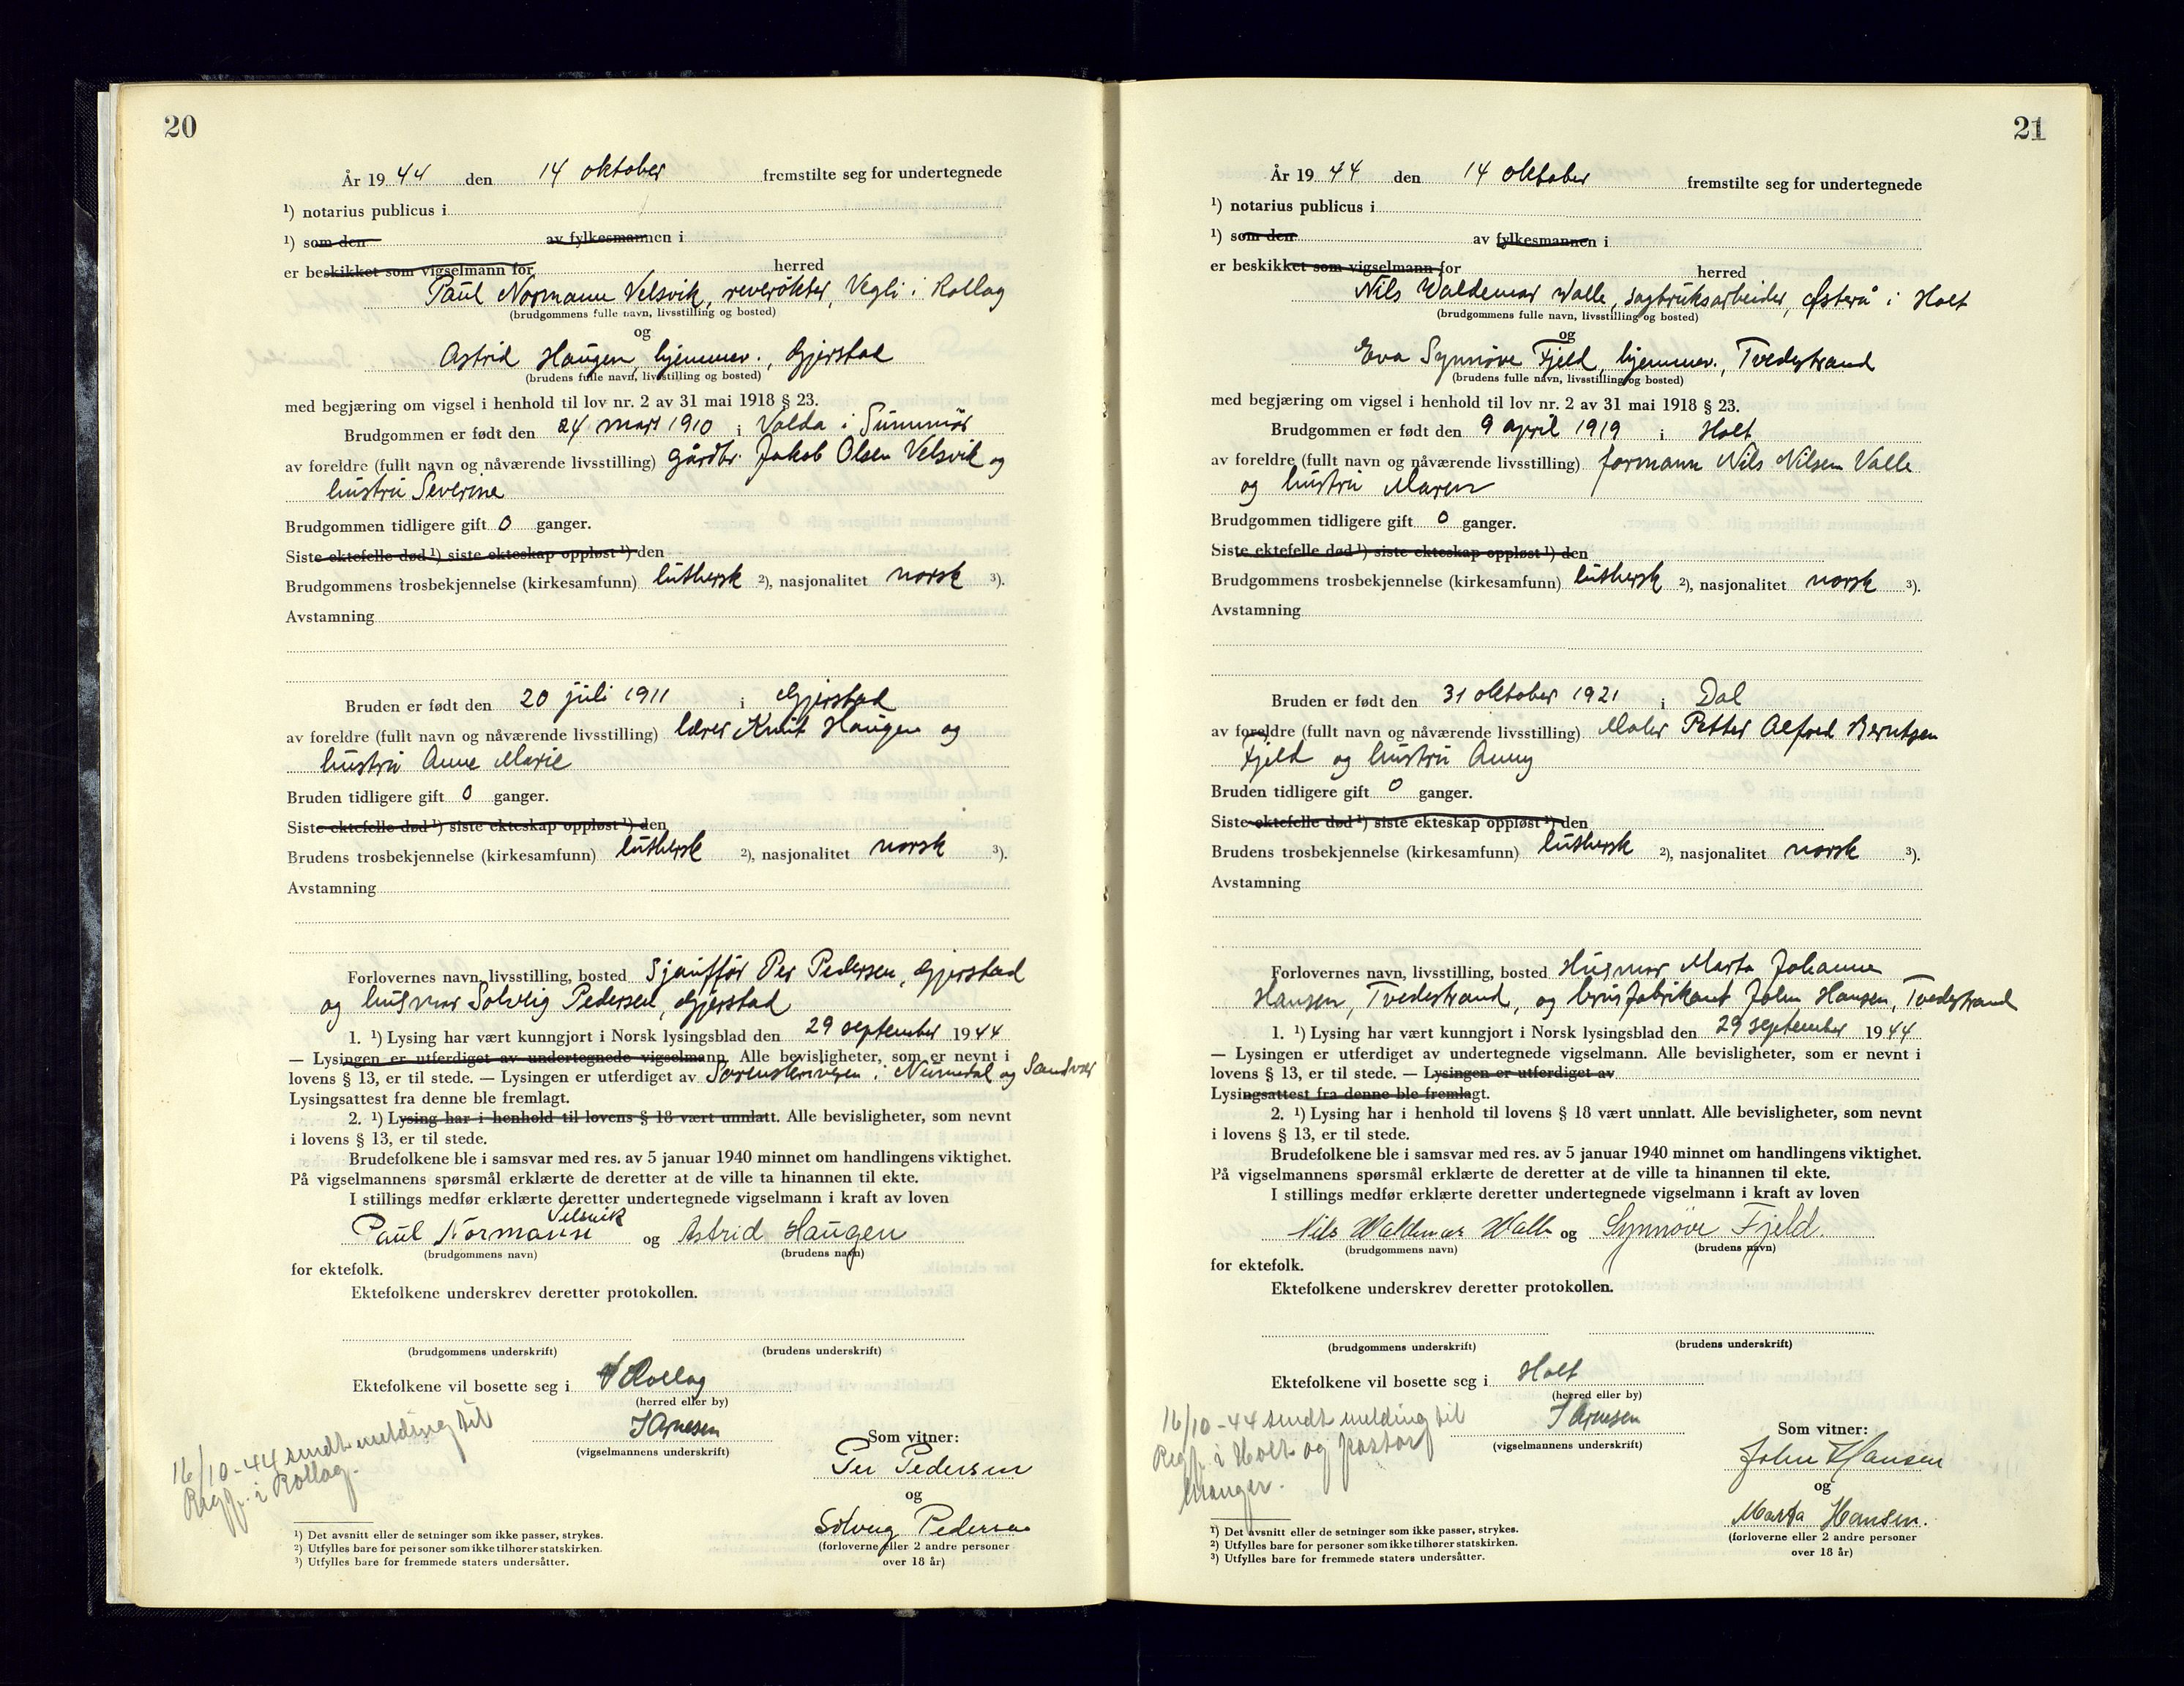 20
År 19 44 den 14 oktober fremstilte seg for undertegnede
¹) notarius publicus i
¹) som den av fylkesmannen i
er beskikket som vigselmann for herred
Paul Normann Velsvik, reverökter, Vegli i Rollag
(brudgommens fulle navn, livsstilling og bosted)
og
Astrid Haugen, hjemmev., Gjerstad
(brudens fulle navn, livsstilling og bosted)
med begjæring om vigsel i henhold til lov nr. 2 av 31 mai 1918 § 23.
Brudgommen er født den 24 mars 1910 i Volda i Sunnmör
av foreldre (fullt navn og nåværende livsstilling) gårdbr. Jakob Olsen Velsvik og
hustru Severine
Brudgommen tidligere gift 0 ganger.
Siste ektefelle død ¹) siste ekteskap oppløst ¹) den
Brudgommens trosbekjennelse (kirkesamfunn) luthersk ²), nasjonalitet norsk ³).
Avstamning
Bruden er født den 20 juli 1911 i Gjerstad
av foreldre (fullt navn og nåværende livsstilling) lærer Knut Haugen og
hustru Anne Marie
Bruden tidligere gift 0 ganger.
Siste ektefelle død ¹) siste ekteskap oppløst ¹) den
Brudens trosbekjennelse (kirkesamfunn) luthersk ²), nasjonalitet norsk ³).
Avstamning
Forlovernes navn, livsstilling, bosted Sjåufför Per Pedersen, Gjerstad
og husmor Solveig Pedersen, Gjerstad
1. ¹) Lysing har vært kunngjort i Norsk lysingsblad den 29 september 1944
— Lysingen er utferdiget av undertegnede vigselmann. Alle bevisligheter, som er nevnt i
lovens § 13, er til stede. — Lysingen er utferdiget av Sorenskriveren i Numedal og Sandsvær
Lysingsattest fra denne ble fremlagt.
2. ¹) Lysing har i henhold til lovens § 18 vært unnlatt. Alle bevisligheter, som nevnt
i lovens § 13, er til stede.
Brudefolkene ble i samsvar med res. av 5 januar 1940 minnet om handlingens viktighet.
På vigselmannens spørsmål erklærte de deretter at de ville ta hinannen til ekte.
I stillings medfør erklærte deretter undertegnede vigselmann i kraft av loven
Velsvik
Paul Normann og Astrid Haugen
(brudgommens navn) (brudens navn)
for ektefolk.
Ektefolkene underskrev deretter protokollen.
(brudgommens underskrift) (brudens underskrift)
Ektefolkene vil bosette seg i Rollag
(herred eller by)
(vigselmannens underskrift)
16/10-44 sendt melding til
Regf. i Rollag.
Som vitner:
Per Pedersen
og
Solveig Pedersen
(forloverne eller 2 andre personer
over 18 år)
¹) Det avsnitt eller de setninger som ikke passer, strykes.
²) Utfylles bare for personer som ikke tilhører statskirken.
³) Utfylles bare for fremmede staters undersåtter.
21
År 19 44 den 14 oktober fremstilte seg for undertegnede
¹) notarius publicus i
¹) som den av fylkesmannen i
er beskikket som vigselmann for herred
Nils Waldemar Walle, sagbruksarbeider, Østerå i Holt
(brudgommens fulle navn, livsstilling og bosted)
og
Eva Synnöve Fjeld, hjemmev., Tvedestrand
(brudens fulle navn, livsstilling og bosted)
med begjæring om vigsel i henhold til lov nr. 2 av 31 mai 1918 § 23.
Brudgommen er født den 9 april 1919 i Holt
av foreldre (fullt navn og nåværende livsstilling) formann Nils Nilsen Valle
og hustru Maren
Brudgommen tidligere gift 0 ganger.
Siste ektefelle død ¹) siste ekteskap oppløst ¹) den
Brudgommens trosbekjennelse (kirkesamfunn) luthersk ²), nasjonalitet norsk ³).
Avstamning
Bruden er født den 31 oktober 1921 i Dal
av foreldre (fullt navn og nåværende livsstilling) Maler Petter Alfred Berntsen
Fjeld og hustru Anny
Bruden tidligere gift 0 ganger.
Siste ektefelle død ¹) siste ekteskap oppløst ¹) den
Brudens trosbekjennelse (kirkesamfunn) luthersk ²), nasjonalitet norsk ³).
Avstamning
Forlovernes navn, livsstilling, bosted Husmor Marta Johanne
Hansen, Tvedestrand, og brusfabrikant John Hansen, Tvedestrand
1. ¹) Lysing har vært kunngjort i Norsk lysingsblad den 29 september 1944
— Lysingen er utferdiget av undertegnede vigselmann. Alle bevisligheter, som er nevnt i
lovens § 13, er til stede. — Lysingen er utferdiget av
Lysingsattest fra denne ble fremlagt.
2. ¹) Lysing har i henhold til lovens § 18 vært unnlatt. Alle bevisligheter, som nevnt
i lovens § 13, er til stede.
Brudefolkene ble i samsvar med res. av 5 januar 1940 minnet om handlingens viktighet.
På vigselmannens spørsmål erklærte de deretter at de ville ta hinannen til ekte.
I stillings medfør erklærte deretter undertegnede vigselmann i kraft av loven
Nils Waldemar Walle og Synnöve Fjeld.
(brudgommens navn) (brudens navn)
for ektefolk.
Ektefolkene underskrev deretter protokollen.
(brudgommens underskrift) (brudens underskrift)
Ektefolkene vil bosette seg i Holt
(herred eller by)
(vigselmannens underskrift)
16/10-44 sendt melding til
Regf. i Holt og pastor
Som vitner:
John Hansen
og
Marta Hansen.
(forloverne eller 2 andre personer
over 18 år)
¹) Det avsnitt eller de setninger som ikke passer, strykes.
²) Utfylles bare for personer som ikke tilhører statskirken.
³) Utfylles bare for fremmede staters undersåtter.